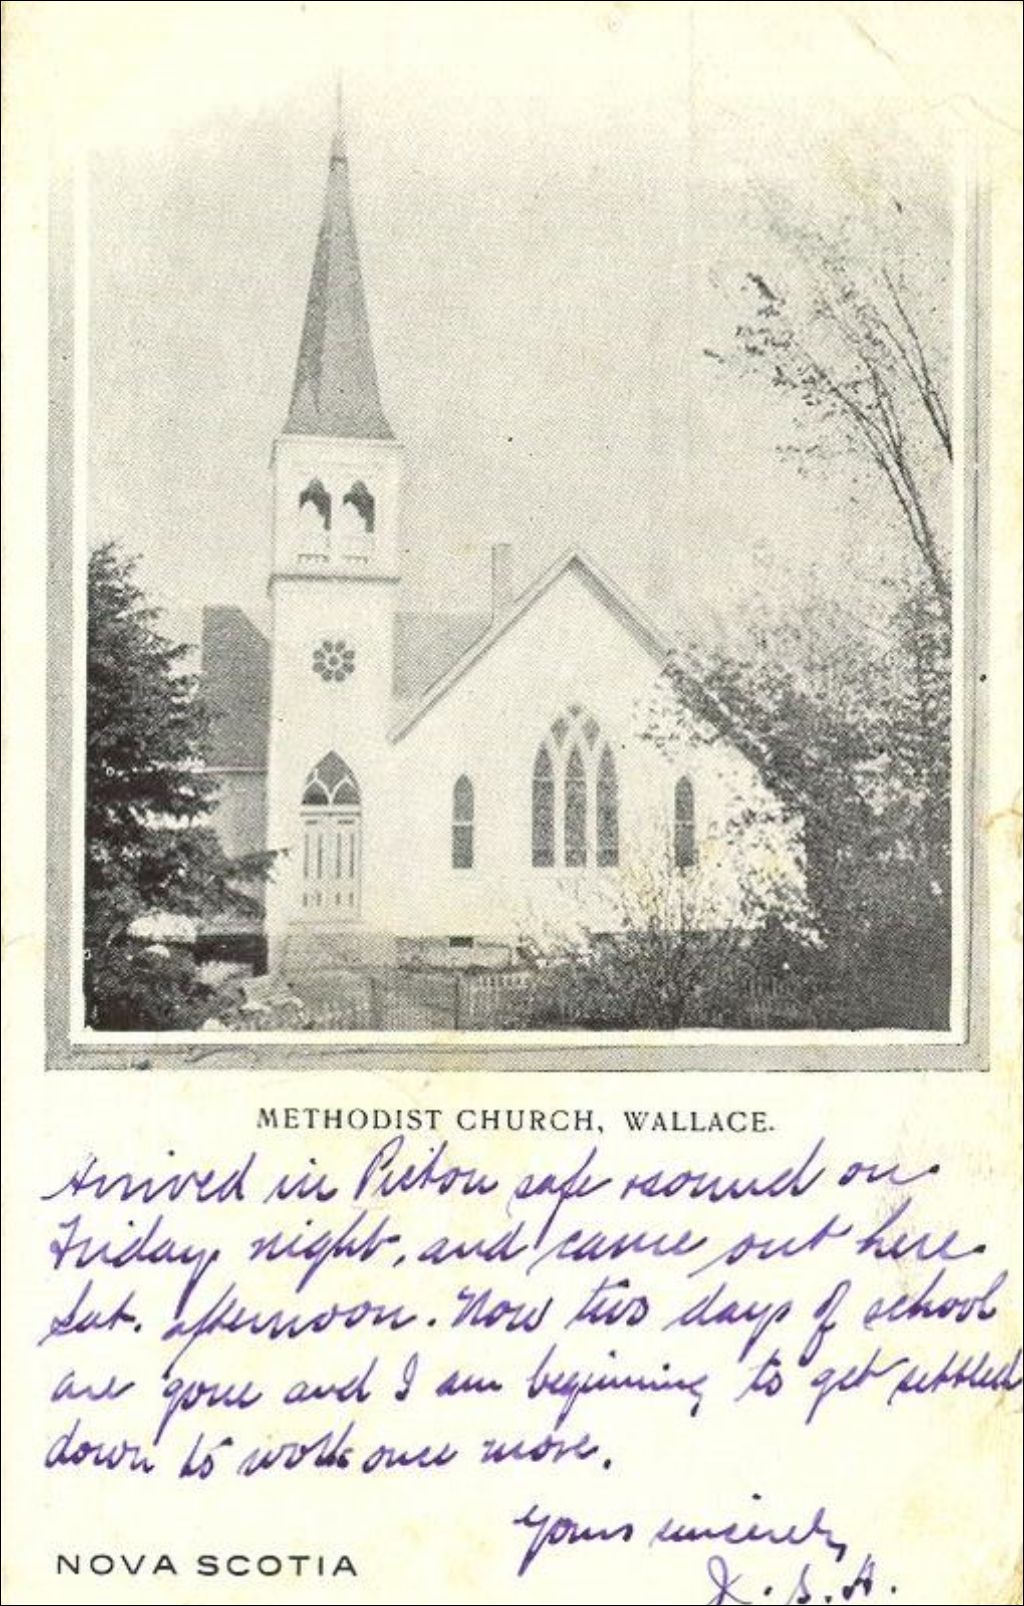 METHODIST CHURCH, WALLACE.
Arrived in Pictou safe & sound on
Friday night, and came out here
Sat. afternoon. Now two days of school
are gone and I am beginning to get settled
down to work once more.
Yours sincerely,
S. A.
NOVA SCOTIA